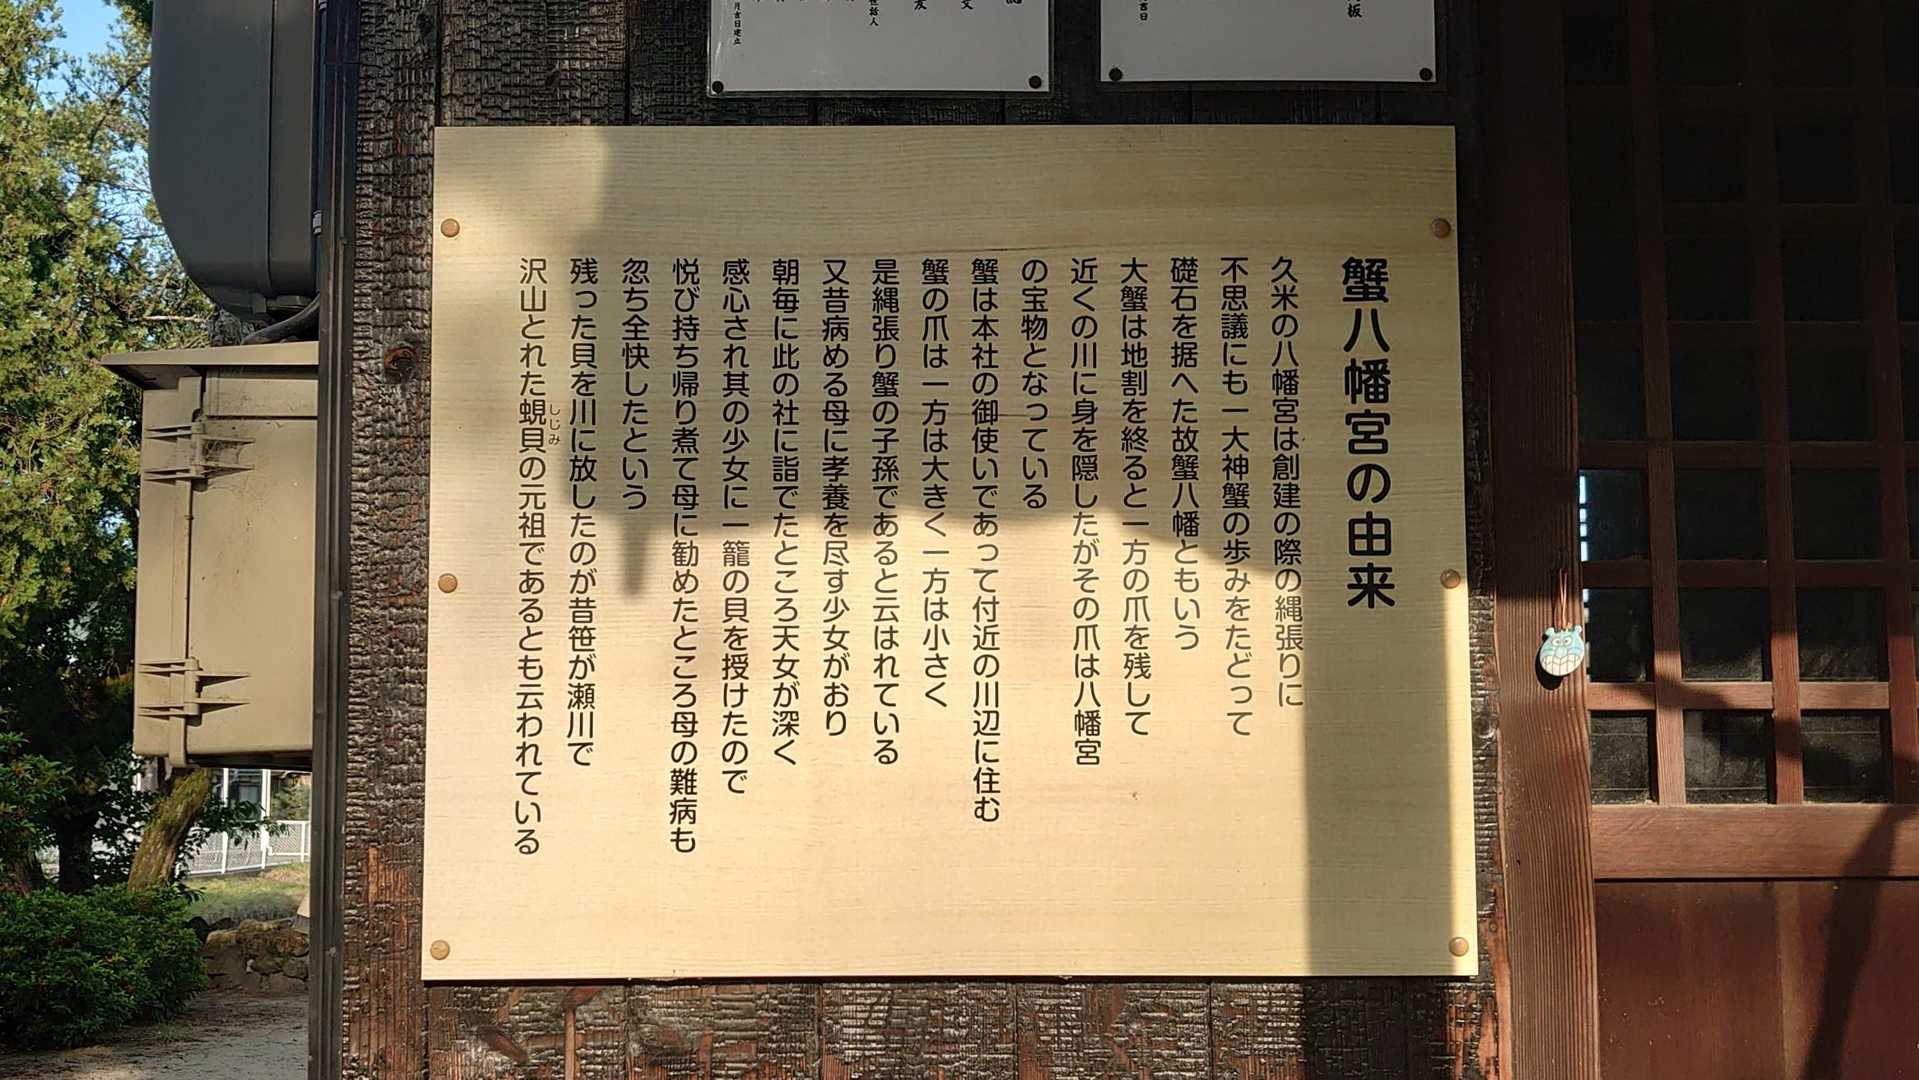 蟹八幡宮の由来
久米の八幡宮は創建の際の縄張りに
不思議にも一大神蟹の歩みをたどって
礎石を据へた故蟹八幡ともいう
大蟹は地割を終ると一方の爪を残して
近くの川に身を隠したがその爪は八幡宮
の宝物となっている
蟹は本社の御使いであって付近の川辺に住む
蟹の爪は一方は大きく一方は小さく
是縄張り蟹の子孫であると云はれている
又昔病める母に孝養を尽す少女がおり
朝毎に此の社に詣でたところ天女が深く
感心され其の少女に一籠の貝を授けたので
悦び持ち帰り煮て母に勧めたところ母の難病も
忽ち全快したという
残った貝を川に放したのが昔笹が瀬川で
沢山とれた蜆貝の元祖であるとも云われている
しじみ
月吉日建立
世話人
友
文
吉日
板